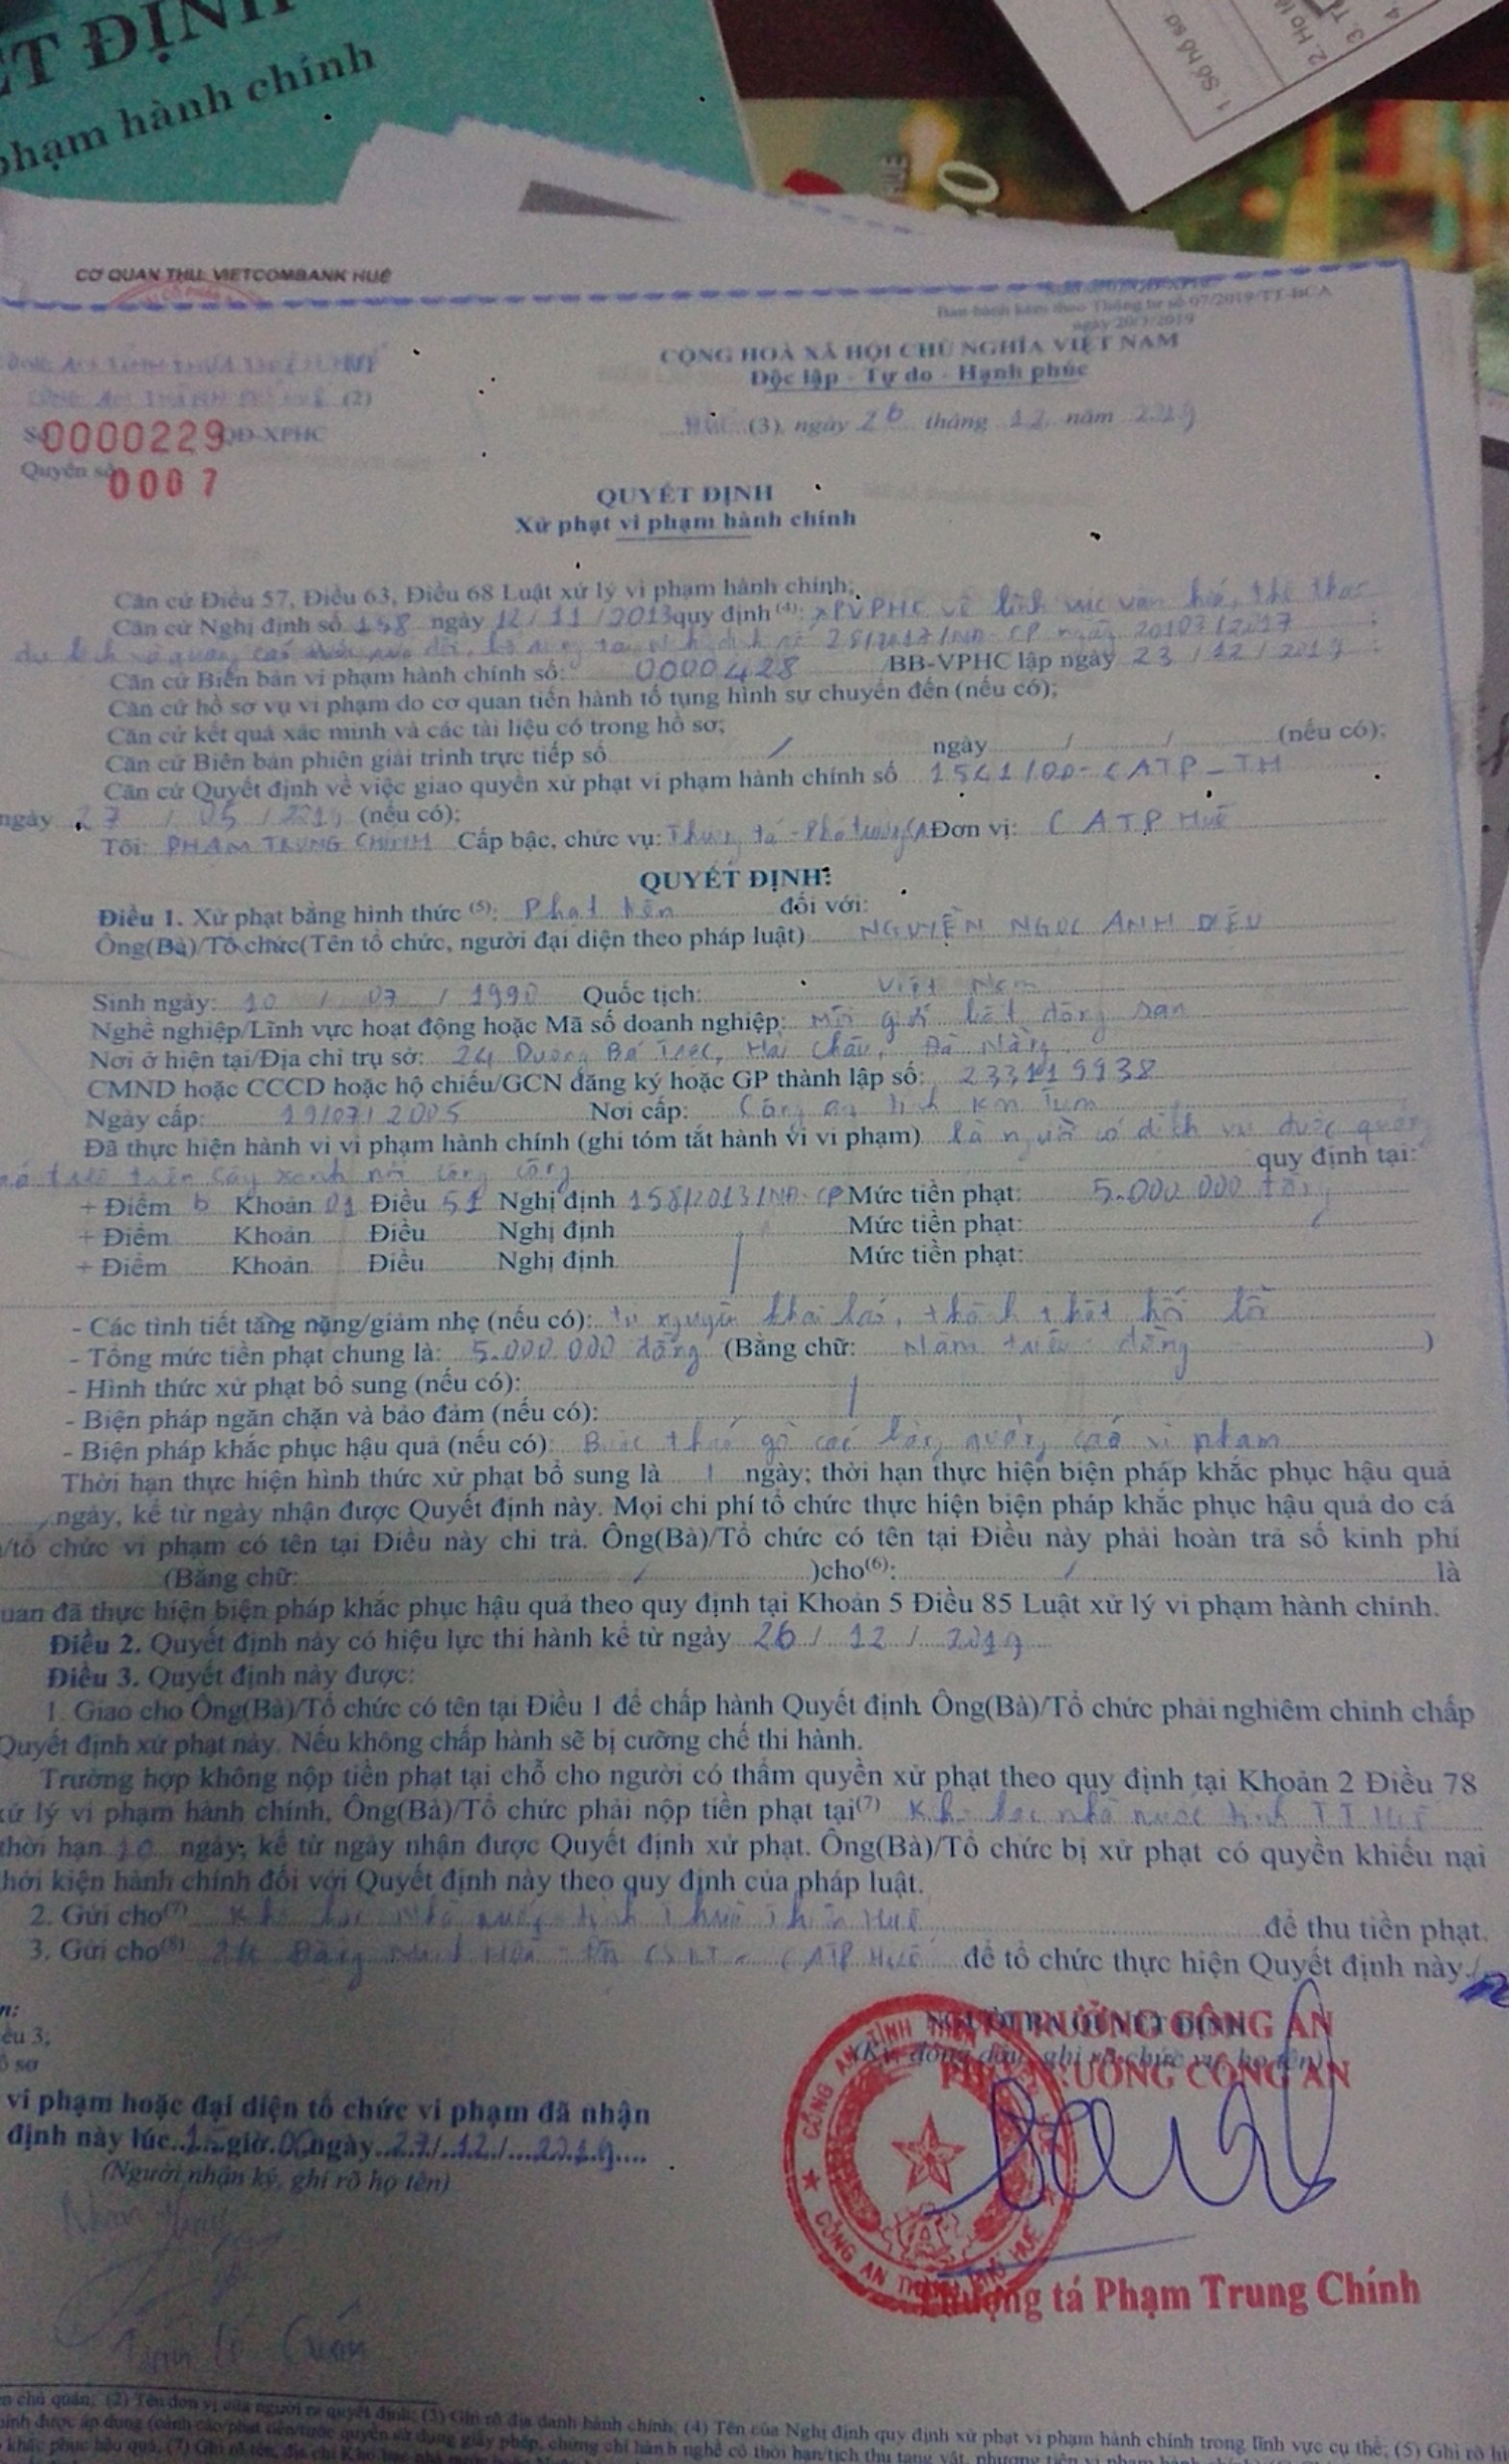 ẾT ĐỊNH
phạm hành chính
1. Số hồ sơ
2. Họ
3. T
4
CƠ QUAN THU: VIETCOMBANK HUẾ
Ban hành kèm theo Thông tư số 07/2019/TT-BCA
ngày 20/3/2019
CỘNG HOÀ XÃ HỘI CHỦ NGHĨA VIỆT NAM
Độc lập - Tự do - Hạnh phúc
(2)
Số 0000229 QĐ-XPHC
Quyển số 0007
Huế (3), ngày 26 tháng 12 năm 2019
QUYẾT ĐỊNH
Xử phạt vi phạm hành chính
Căn cứ Điều 57, Điều 63, Điều 68 Luật xử lý vi phạm hành chính;
Căn cứ Nghị định số 158 ngày 12/11/2013 quy định (4): XPVPHC về lĩnh vực văn hoá, thể thao
du lịch và quảng cáo 28/2017/NĐ-CP ngày 20/03/2017;
Căn cứ Biên bản vi phạm hành chính số: 0000428 /BB-VPHC lập ngày 23/12/2019;
Căn cứ hồ sơ vụ vi phạm do cơ quan tiến hành tố tụng hình sự chuyển đến (nếu có);
Căn cứ kết quả xác minh và các tài liệu có trong hồ sơ;
Căn cứ Biên bản phiên giải trình trực tiếp số / ngày / / (nếu có);
Căn cứ Quyết định về việc giao quyền xử phạt vi phạm hành chính số 1541/QĐ-CATP-TH
ngày 27/05/2019 (nếu có);
Tôi: PHẠM TRUNG CHÍNH Cấp bậc, chức vụ: Thượng tá - Phó trưởng CA Đơn vị: CATP Huế
QUYẾT ĐỊNH:
Điều 1. Xử phạt bằng hình thức (5): Phạt tiền đối với:
Ông(Bà)/Tổ chức(Tên tổ chức, người đại diện theo pháp luật) NGUYỄN NGỌC ANH DIỆU
Sinh ngày: 10 / 07 / 1990 Quốc tịch: Việt Nam
Nghề nghiệp/Lĩnh vực hoạt động hoặc Mã số doanh nghiệp: Môi giới bất động sản
Nơi ở hiện tại/Địa chỉ trụ sở: 24 Dương Bá Trạc, Hải Châu, Đà Nẵng
CMND hoặc CCCD hoặc hộ chiếu/GCN đăng ký hoặc GP thành lập số: 233119938
Ngày cấp: 19/07/2005 Nơi cấp: Công an tỉnh Kon Tum
Đã thực hiện hành vi vi phạm hành chính (ghi tóm tắt hành vi vi phạm) là người có dịch vụ được quảng
cáo treo trên cây xanh nơi công cộng quy định tại:
+ Điểm b Khoản 01 Điều 51 Nghị định 158/2013/NĐ-CP Mức tiền phạt: 5.000.000 đồng
+ Điểm Khoản Điều Nghị định Mức tiền phạt: /
+ Điểm Khoản Điều Nghị định / Mức tiền phạt:
- Các tình tiết tăng nặng/giảm nhẹ (nếu có): tự nguyện khai báo, thành thật hối lỗi
- Tổng mức tiền phạt chung là: 5.000.000 đồng (Bằng chữ: Năm triệu đồng )
- Hình thức xử phạt bổ sung (nếu có):
- Biện pháp ngăn chặn và bảo đảm (nếu có): /
- Biện pháp khắc phục hậu quả (nếu có): Buộc tháo gỡ các bảng quảng cáo vi phạm
Thời hạn thực hiện hình thức xử phạt bổ sung là / ngày; thời hạn thực hiện biện pháp khắc phục hậu quả
/ ngày, kể từ ngày nhận được Quyết định này. Mọi chi phí tổ chức thực hiện biện pháp khắc phục hậu quả do cá
/tổ chức vi phạm có tên tại Điều này chi trả. Ông(Bà)/Tổ chức có tên tại Điều này phải hoàn trả số kinh phí
(Bằng chữ: / )cho(6): / là
quan đã thực hiện biện pháp khắc phục hậu quả theo quy định tại Khoản 5 Điều 85 Luật xử lý vi phạm hành chính.
Điều 2. Quyết định này có hiệu lực thi hành kể từ ngày 26 / 12 / 2019
Điều 3. Quyết định này được:
1. Giao cho Ông(Bà)/Tổ chức có tên tại Điều 1 để chấp hành Quyết định. Ông(Bà)/Tổ chức phải nghiêm chỉnh chấp
Quyết định xử phạt này. Nếu không chấp hành sẽ bị cưỡng chế thi hành.
Trường hợp không nộp tiền phạt tại chỗ cho người có thẩm quyền xử phạt theo quy định tại Khoản 2 Điều 78
xử lý vi phạm hành chính, Ông(Bà)/Tổ chức phải nộp tiền phạt tại(7) Kho bạc nhà nước tỉnh TT Huế
thời hạn 10 ngày; kể từ ngày nhận được Quyết định xử phạt. Ông(Bà)/Tổ chức bị xử phạt có quyền khiếu nại
khởi kiện hành chính đối với Quyết định này theo quy định của pháp luật.
2. Gửi cho(7) Kho bạc Nhà nước tỉnh Thừa Thiên Huế để thu tiền phạt.
3. Gửi cho(8) CATP Huế để tổ chức thực hiện Quyết định này.
n:
ều 3;
ồ sơ
NGƯỜI RA QUYẾT ĐỊNH
(Ký, đóng dấu, ghi rõ chức vụ, họ tên)
TRƯỞNG CÔNG AN
PHÓ TRƯỞNG CÔNG AN
vi phạm hoặc đại diện tổ chức vi phạm đã nhận
định này lúc 15 giờ ngày 27/12/2019
(Người nhận ký, ghi rõ họ tên)
Thượng tá Phạm Trung Chính
n chủ quản; (2) Tên đơn vị của người ra quyết định; (3) Ghi rõ địa danh hành chính; (4) Tên của Nghị định quy định xử phạt vi phạm hành chính trong lĩnh vực cụ thể; (5) Ghi rõ